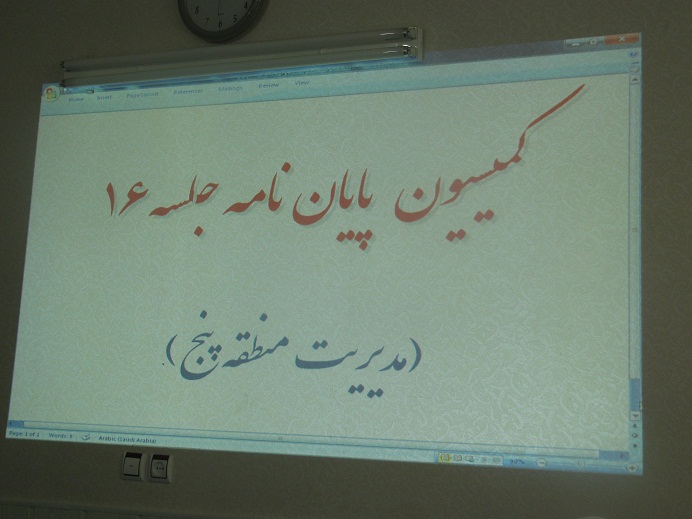 Home Insert Page Layout References Mailings Review View
کمیسیون پایان نامه جلسه ۱۶
(مدیریت منطقه پنج)
Page: 1 of 1 Words: 3 Arabic (Saudi Arabia)
90%